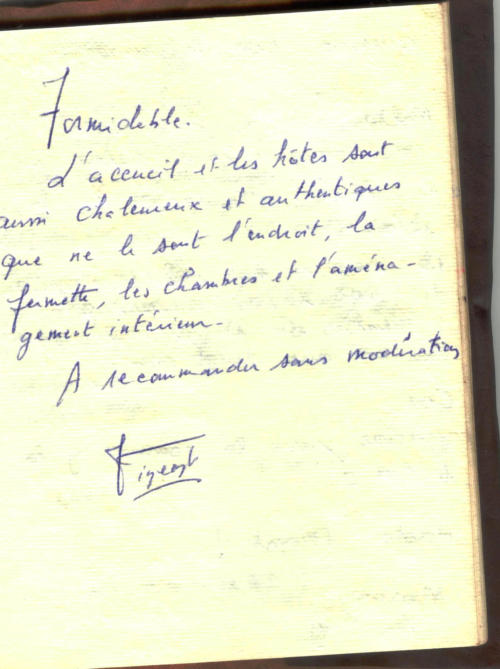 Formidable.
L'accueil et les hôtes sont
aussi chaleureux et authentiques
que ne le sont l'endroit, la
fermette, les chambres et l'aména-
gement intérieur.
A recommander sans modération